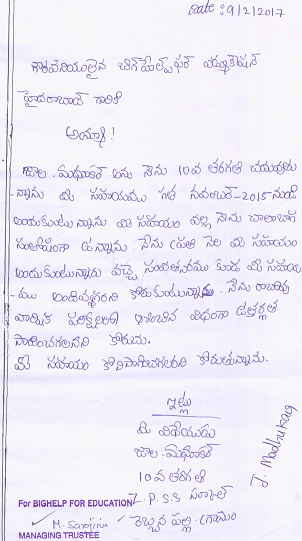 Date : 9/2/2017
గౌరవనీయులైన బిగ్‌హెల్ప్‌ఫర్ ఎడ్యుకేషన్
హైదరాబాద్ గారికి
అయ్యా!
జాల. మధూకర్ అను నేను 10వ తరగతి చదువుతు
-న్నాను మీ సహాయము గత నవంబర్-2015 నుండి
అందుకుంటున్నాను మీ సహాయం వల్ల నేను చాలాబాగ
సంతోషంగా ఉన్నాను. నేను ప్రతి నెల మీ సహాయం
అందుకుంటున్నాను వచ్చే సంవత్సరము కూడ మీ సహాయ
-ము అందివ్వగలరని కోరుకుంటున్నాను. నేను రాబోవు
వార్షిక పరీక్షలలో ఆశించిన విధంగా ఉత్తీర్ణత
సాధించగలనని
మీ సహాయం కొనసాగించగలరని కోరుతున్నాను.
ఇట్లు
మీ విధేయుడు
జాల. మధూకర్
10వ తరగతి
Z. P. S. S
పల్లి (గ్రామం)
J. Madhukar
For BIGHELP FOR EDUCATION
M. Sarojini
MANAGING TRUSTEE